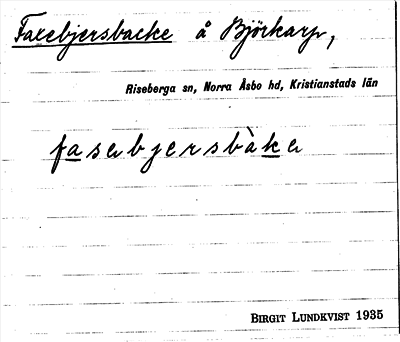 Faxebjersbacke å Björkarp,
Riseberga sn, Norra Åsbo hd, Kristianstads län
fasebjersbàke
BIRGIT LUNDKVIST 1935